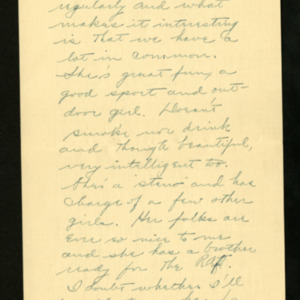 regularly and what
makes it interesting
is that we have a
lot in common.
She's great fun, a
good sport and out-
door girl. Doesn't
smoke nor drink
and though beautiful,
very intelligent too.
She's a "steno" and has
charge of a few other
girls. Her folks are
ever so nice to me
and she has a brother
ready for the RAF.
I doubt whether I'll